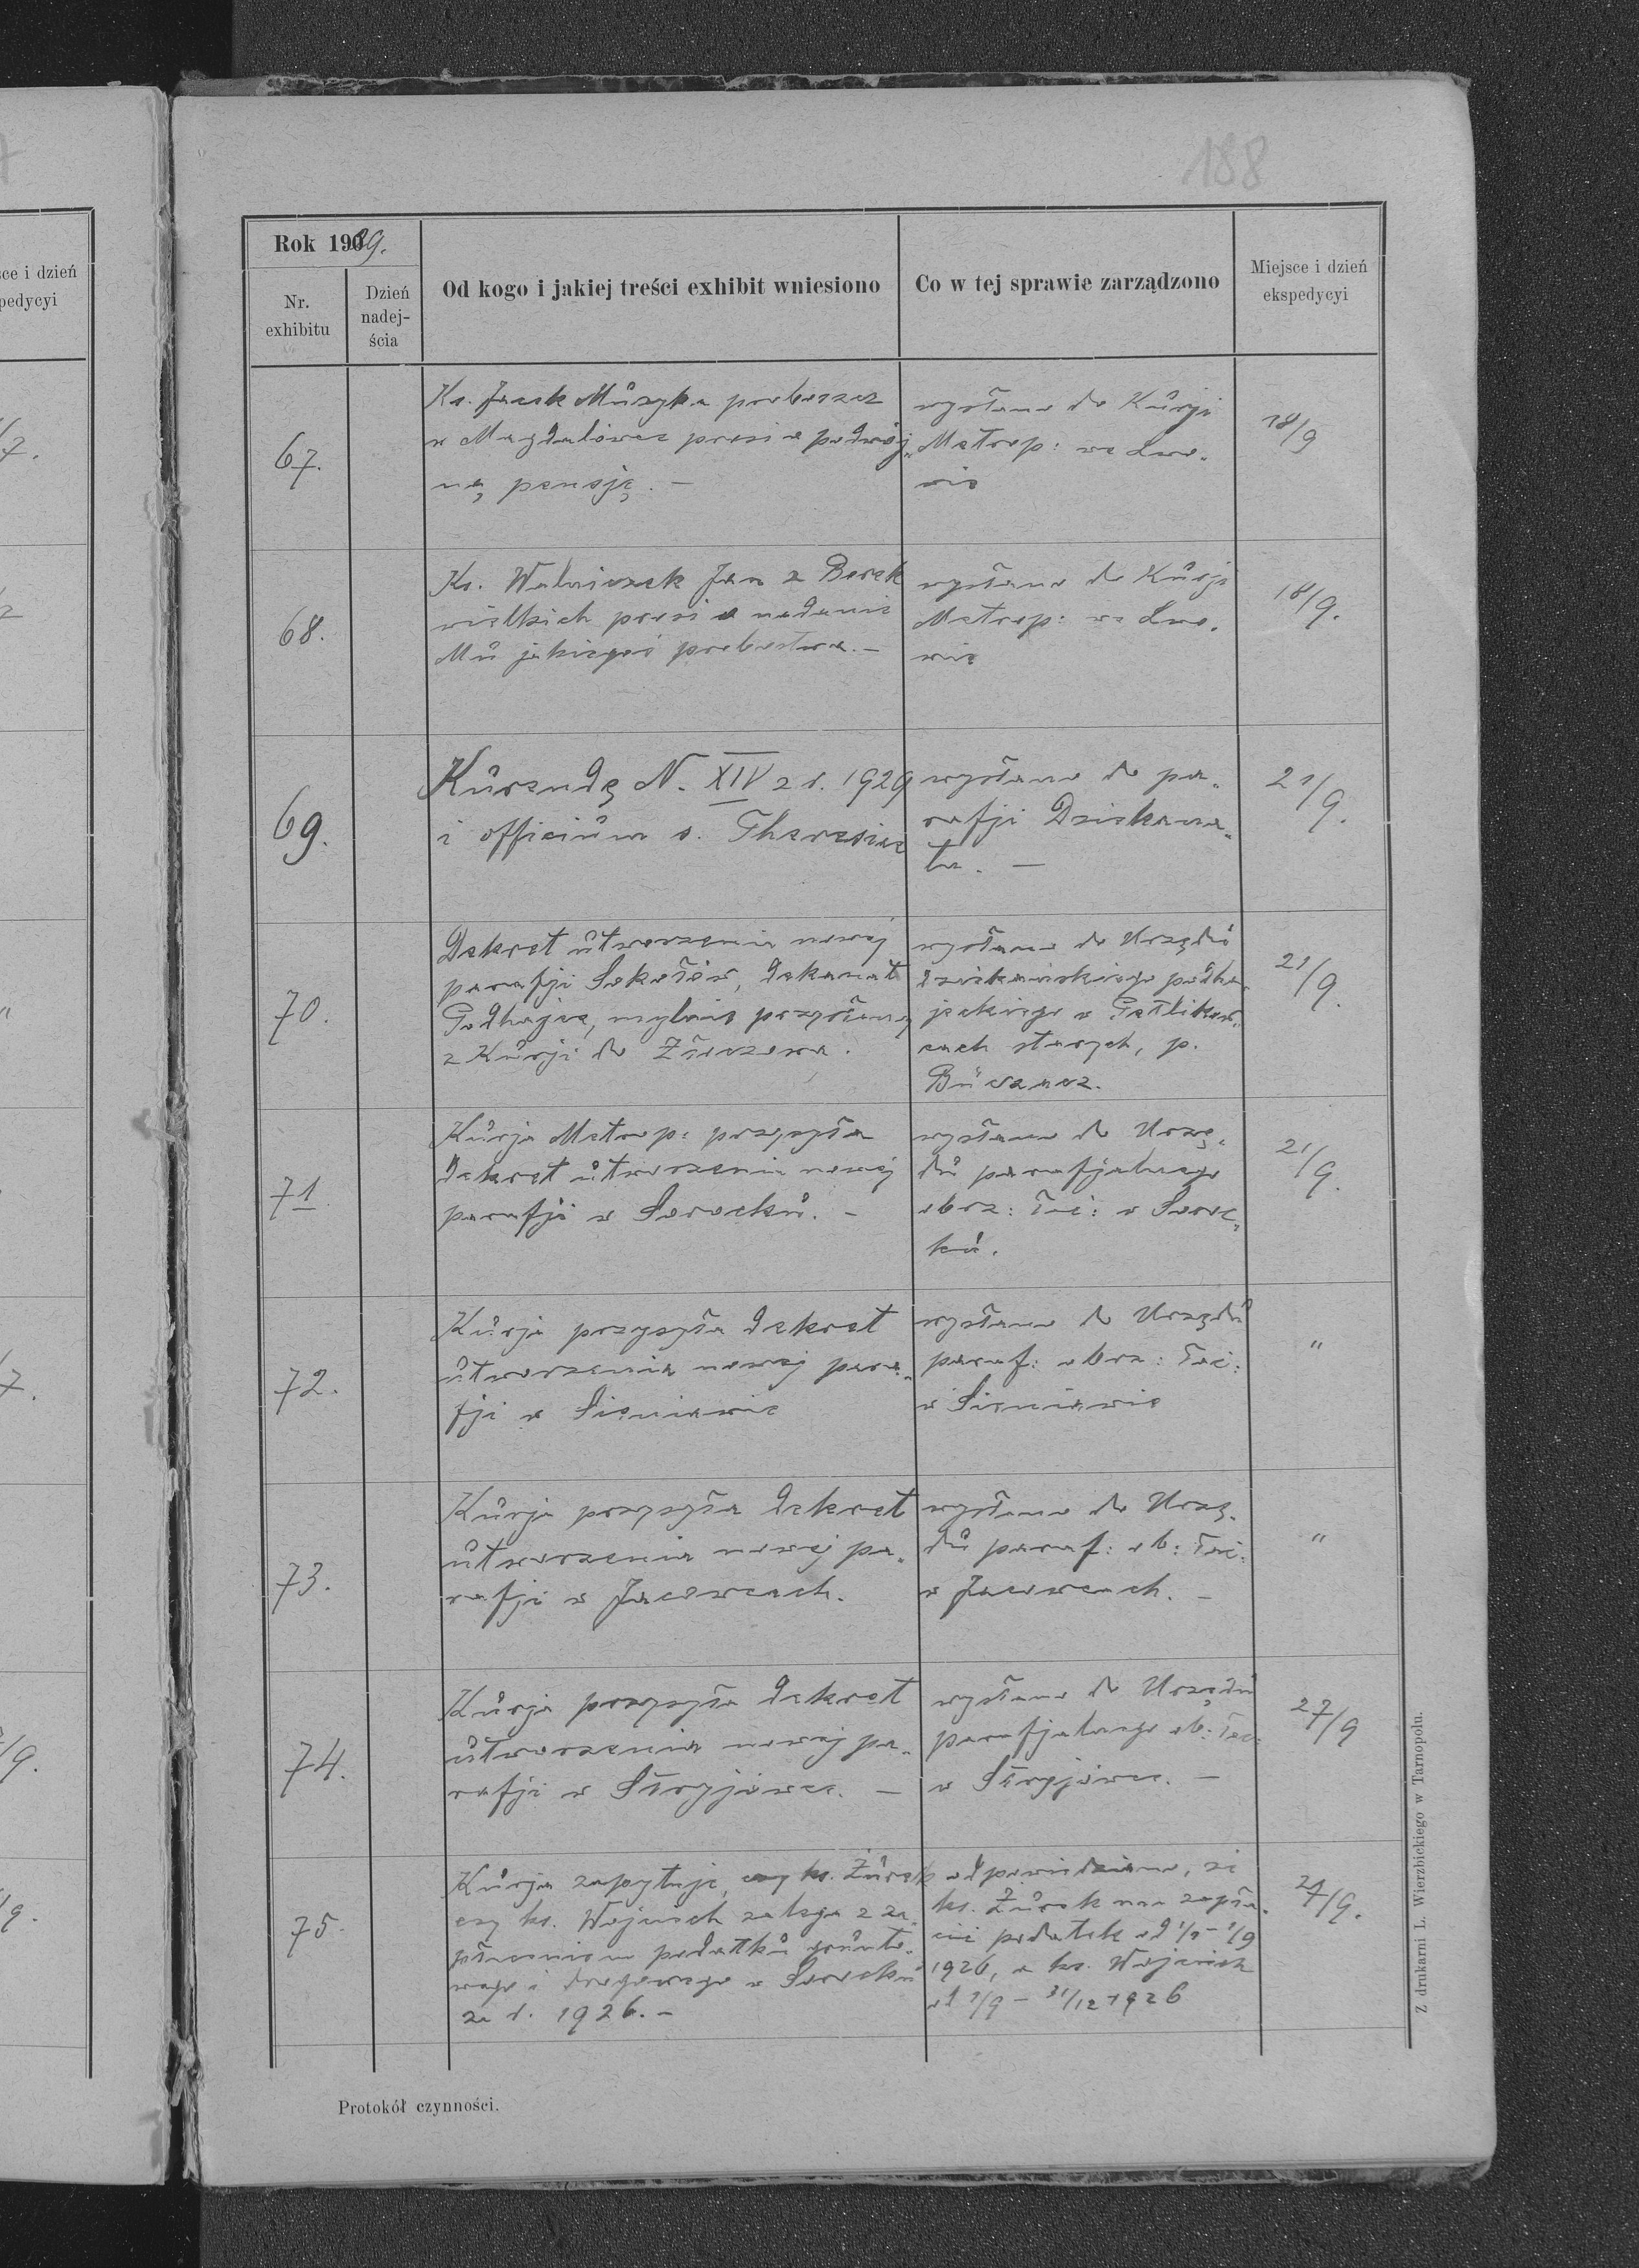 188
Rok 1929.
Nr. exhibitu
Dzień nadejścia
Od kogo i jakiej treści exhibit wniesiono
Co w tej sprawie zarządzono
Miejsce i dzień ekspedycyi
67.
Ks. Jacek Muzyka proboszcz
w Magdalówce prosi o podwój„
ną pensję. –
wysłano do Kurji
Metrop: we Lwo„
wie
18/9
68.
Ks. Walniczek Jan z Borek
wielkich prosi o nadanie
Mu jakiegoś probostwa. –
wysłano do Kurji
Metrop: we Lwo„
wie
18/9.
69.
Kurendę N. XIV z r. 1929
i officium s. Theresiae
wysłano do pa„
rafji Dziekana„
tu. –
21/9.
70.
Dekret utworzenia nowej
parafji Sokołów, dekanat
Podhajce, mylnie przysłany
z Kurji do Zbaraża.
wysłano do Urzędu
dziekańskiego podha„
jeckiego w Petlikow„
cach starych, p.
Buczacz.
21/9.
71.
Kurja Metrop: przysyła
dekret utworzenia nowej
parafji w Sorocku. –
wysłano do Urzę„
du parafjalnego
obrz: łać: w Soroc„
ku.
21/9.
72.
Kurja przysyła dekret
utworzenia nowej para„
fji w Sieniawie
wysłano do Urzędu
paraf: obrz: łać:
w Sieniawie
"
73.
Kurja przysyła dekret
utworzenia nowej pa„
rafji w Jacowcach.
wysłano do Urzę„
du paraf: ob: łać:
w Jacowcach. –
"
74.
Kurja przysyła dekret
utworzenia nowej pa„
rafji w Stryjówce. –
wysłano do Urzędu
parafjalnego ob: łać:
w Stryjówce. –
27/9
75.
Kurja zapytuje, czy ks. Żurek
czy ks. Wojciech zalega z za„
płaceniem podatku grunto„
wego i drogowego w Sorocku
za r. 1926. –
odpowiedziano, że
ks. Żurek ma zapła„
cić podatek od 1/1 – 1/9
1926, a ks. Wojciech
od 1/9 – 31/12 1926
27/9.
Protokół czynności.
Z drukarni L. Wierzbickiego w Tarnopolu.